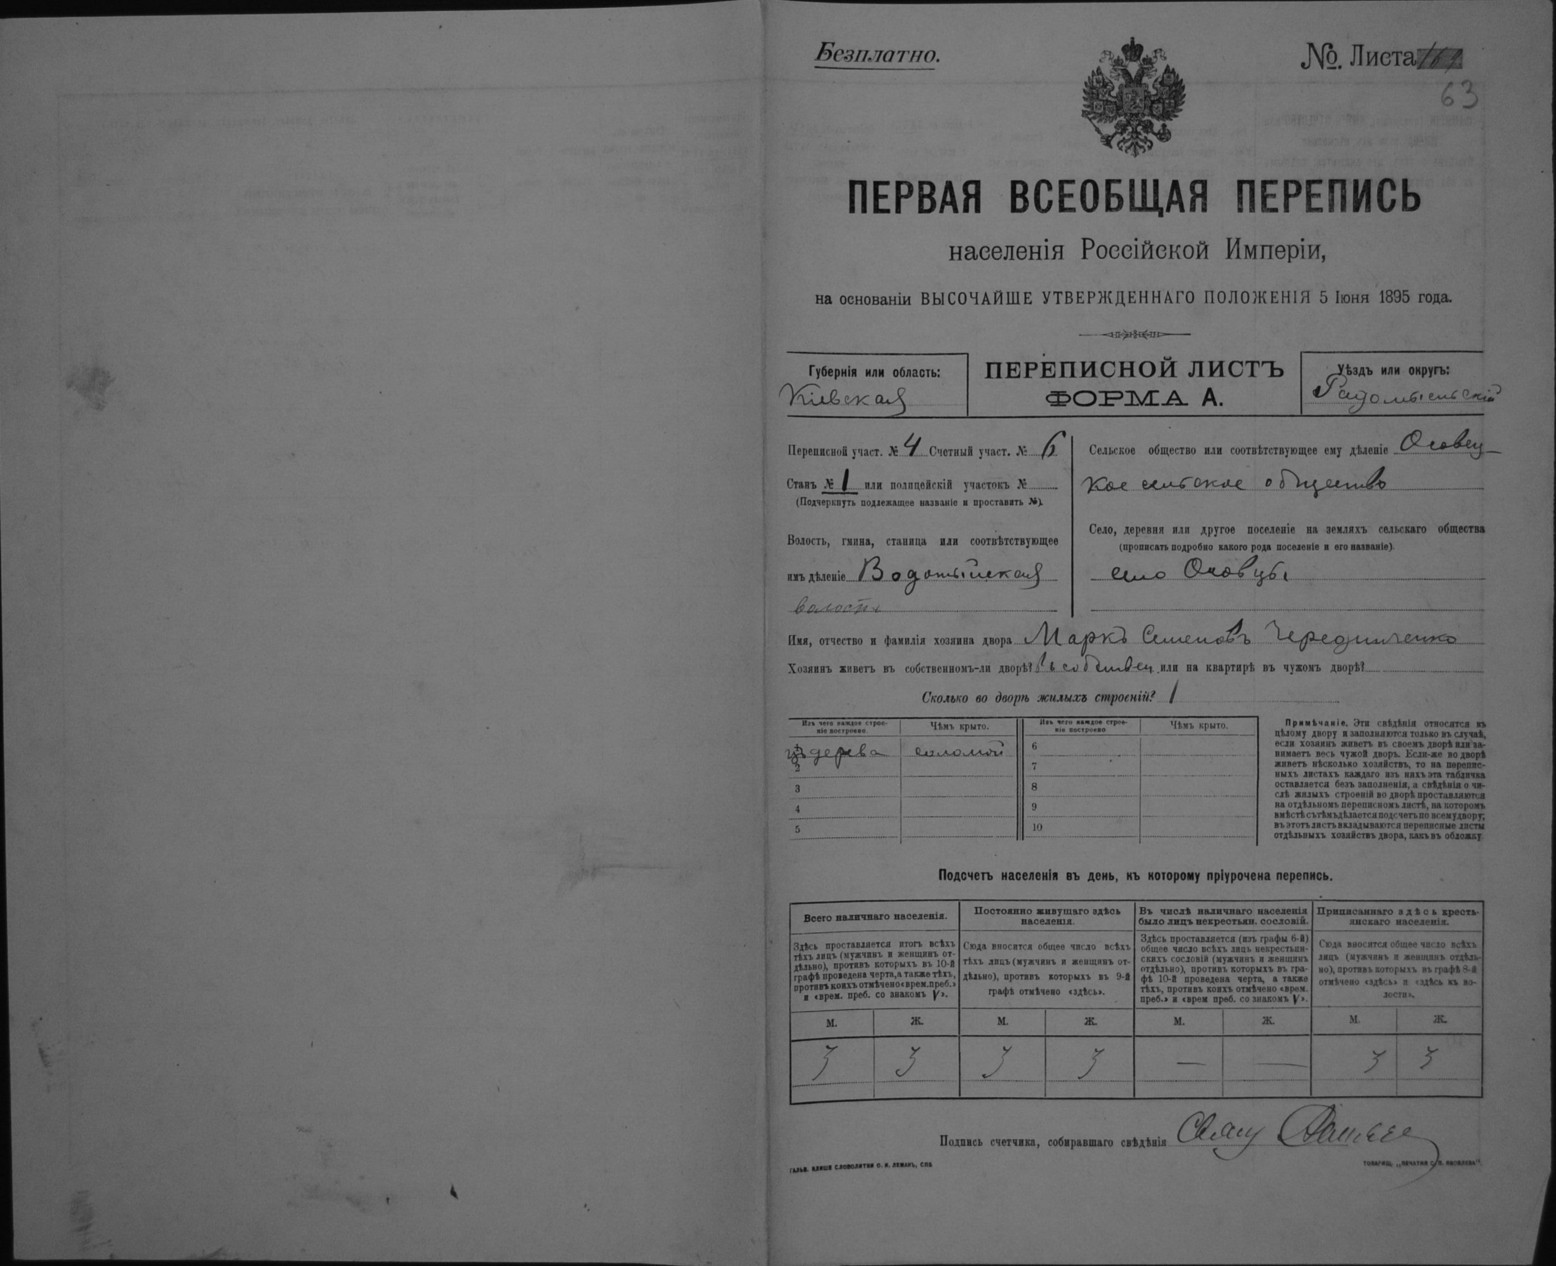 Безплатно.
№. Листа
63
ПЕРВАЯ ВСЕОБЩАЯ ПЕРЕПИСЬ
населенія Россійской Имперіи,
на основаніи ВЫСОЧАЙШЕ УТВЕРЖДЕННАГО ПОЛОЖЕНІЯ 5 Іюня 1895 года.
Губернія или область:
Кіевская
ПЕРЕПИСНОЙ ЛИСТЪ
ФОРМА А.
Уѣздъ или округъ:
Радомысльскій
Переписной участ. № 4 Счетный участ. № 6
Станъ № 1 или полицейскій участокъ №
(Подчеркнуть подлежащее названіе и проставить №).
Волость, гмина, станица или соотвѣтствующее
имъ дѣленіе Водотыйская
волость
Сельское общество или соотвѣтствующее ему дѣленіе Осовец-
кое сельское общество
Село, деревня или другое поселеніе на земляхъ сельскаго общества
(прописать подробно какого рода поселеніе и его названіе)
село Осовцы
Имя, отчество и фамилія хозяина двора Маркъ Семеновъ Чередниченко
Хозяинъ живетъ въ собственномъ-ли дворѣ? въ собствен или на квартирѣ въ чужом дворѣ?
Сколько во дворѣ жилыхъ строеній? 1
Изъ чего каждое строе-
ніе построено.
Чѣмъ крыто.
Изъ чего каждое строе-
ніе построено
Чѣмъ крыто.
изъ дерева соломой
2
3
4
5
6
7
8
9
10
Примѣчаніе. Эти свѣдѣнія относятся къ
цѣлому двору и заполняются только въ случаѣ,
если хозяинъ живетъ въ своемъ дворѣ или за-
нимаетъ весь чужой дворъ. Если-же во дворѣ
живетъ нѣсколько хозяйствъ, то на перепис-
ныхъ листахъ каждаго изъ нихъ эта табличка
оставляется безъ заполненія, а свѣдѣнія о чи-
слѣ жилыхъ строеній во дворѣ проставляются
на отдѣльномъ переписномъ листѣ, на которомъ
вмѣстѣ съ тѣмъ дѣлается подсчетъ по всему двору;
въ этотъ листъ вкладываются переписные листы
отдѣльныхъ хозяйствъ двора, какъ въ обложку
Подсчетъ населенія въ день, къ которому пріурочена перепись.
Всего наличнаго населенія.
Здѣсь проставляется итогъ всѣхъ
тѣхъ лицъ (мужчинъ и женщинъ от-
дѣльно), противъ которыхъ въ 10-й
графѣ проведена черта, а также тѣхъ,
противъ коихъ отмѣчено «врем. преб.»
и «врем. преб. со знакомъ V».
Постоянно живущаго здѣсь
населенія.
Сюда вносится общее число всѣхъ
тѣхъ лицъ (мужчинъ и женщинъ от-
дѣльно), противъ которыхъ въ 9-й
графѣ отмѣчено «здѣсь».
Въ числѣ наличнаго населенія
было лицъ некрестьян. сословій.
Здѣсь проставляется (изъ графы 6-й)
общее число всѣхъ лицъ некрестьян-
скихъ сословій (мужчинъ и женщинъ
отдѣльно), противъ которыхъ въ гра-
фѣ 10-й проведена черта, а также
тѣхъ, противъ коихъ отмѣчено «врем.
преб.» и «врем преб. со знакомъ V».
Приписаннаго здѣсь кресть-
янскаго населенія.
Сюда вносится общее число всѣхъ
лицъ (мужчинъ и женщинъ отдѣль-
но), противъ которыхъ въ графѣ 8-й
отмѣчено «здѣсь» и «здѣсь въ во-
лости».
М. Ж. М. Ж. М. Ж. М. Ж.
3 3 3 3 — — 3 3
Подпись счетчика, собиравшаго свѣдѣнія
ГАЛЬВ. КЛИШЕ СЛОВОЛИТНИ О. И. ЛЕМАНЪ, СПБ
ТОВАРИЩ. „ПЕЧАТНЯ С. П. ЯКОВЛЕВА".